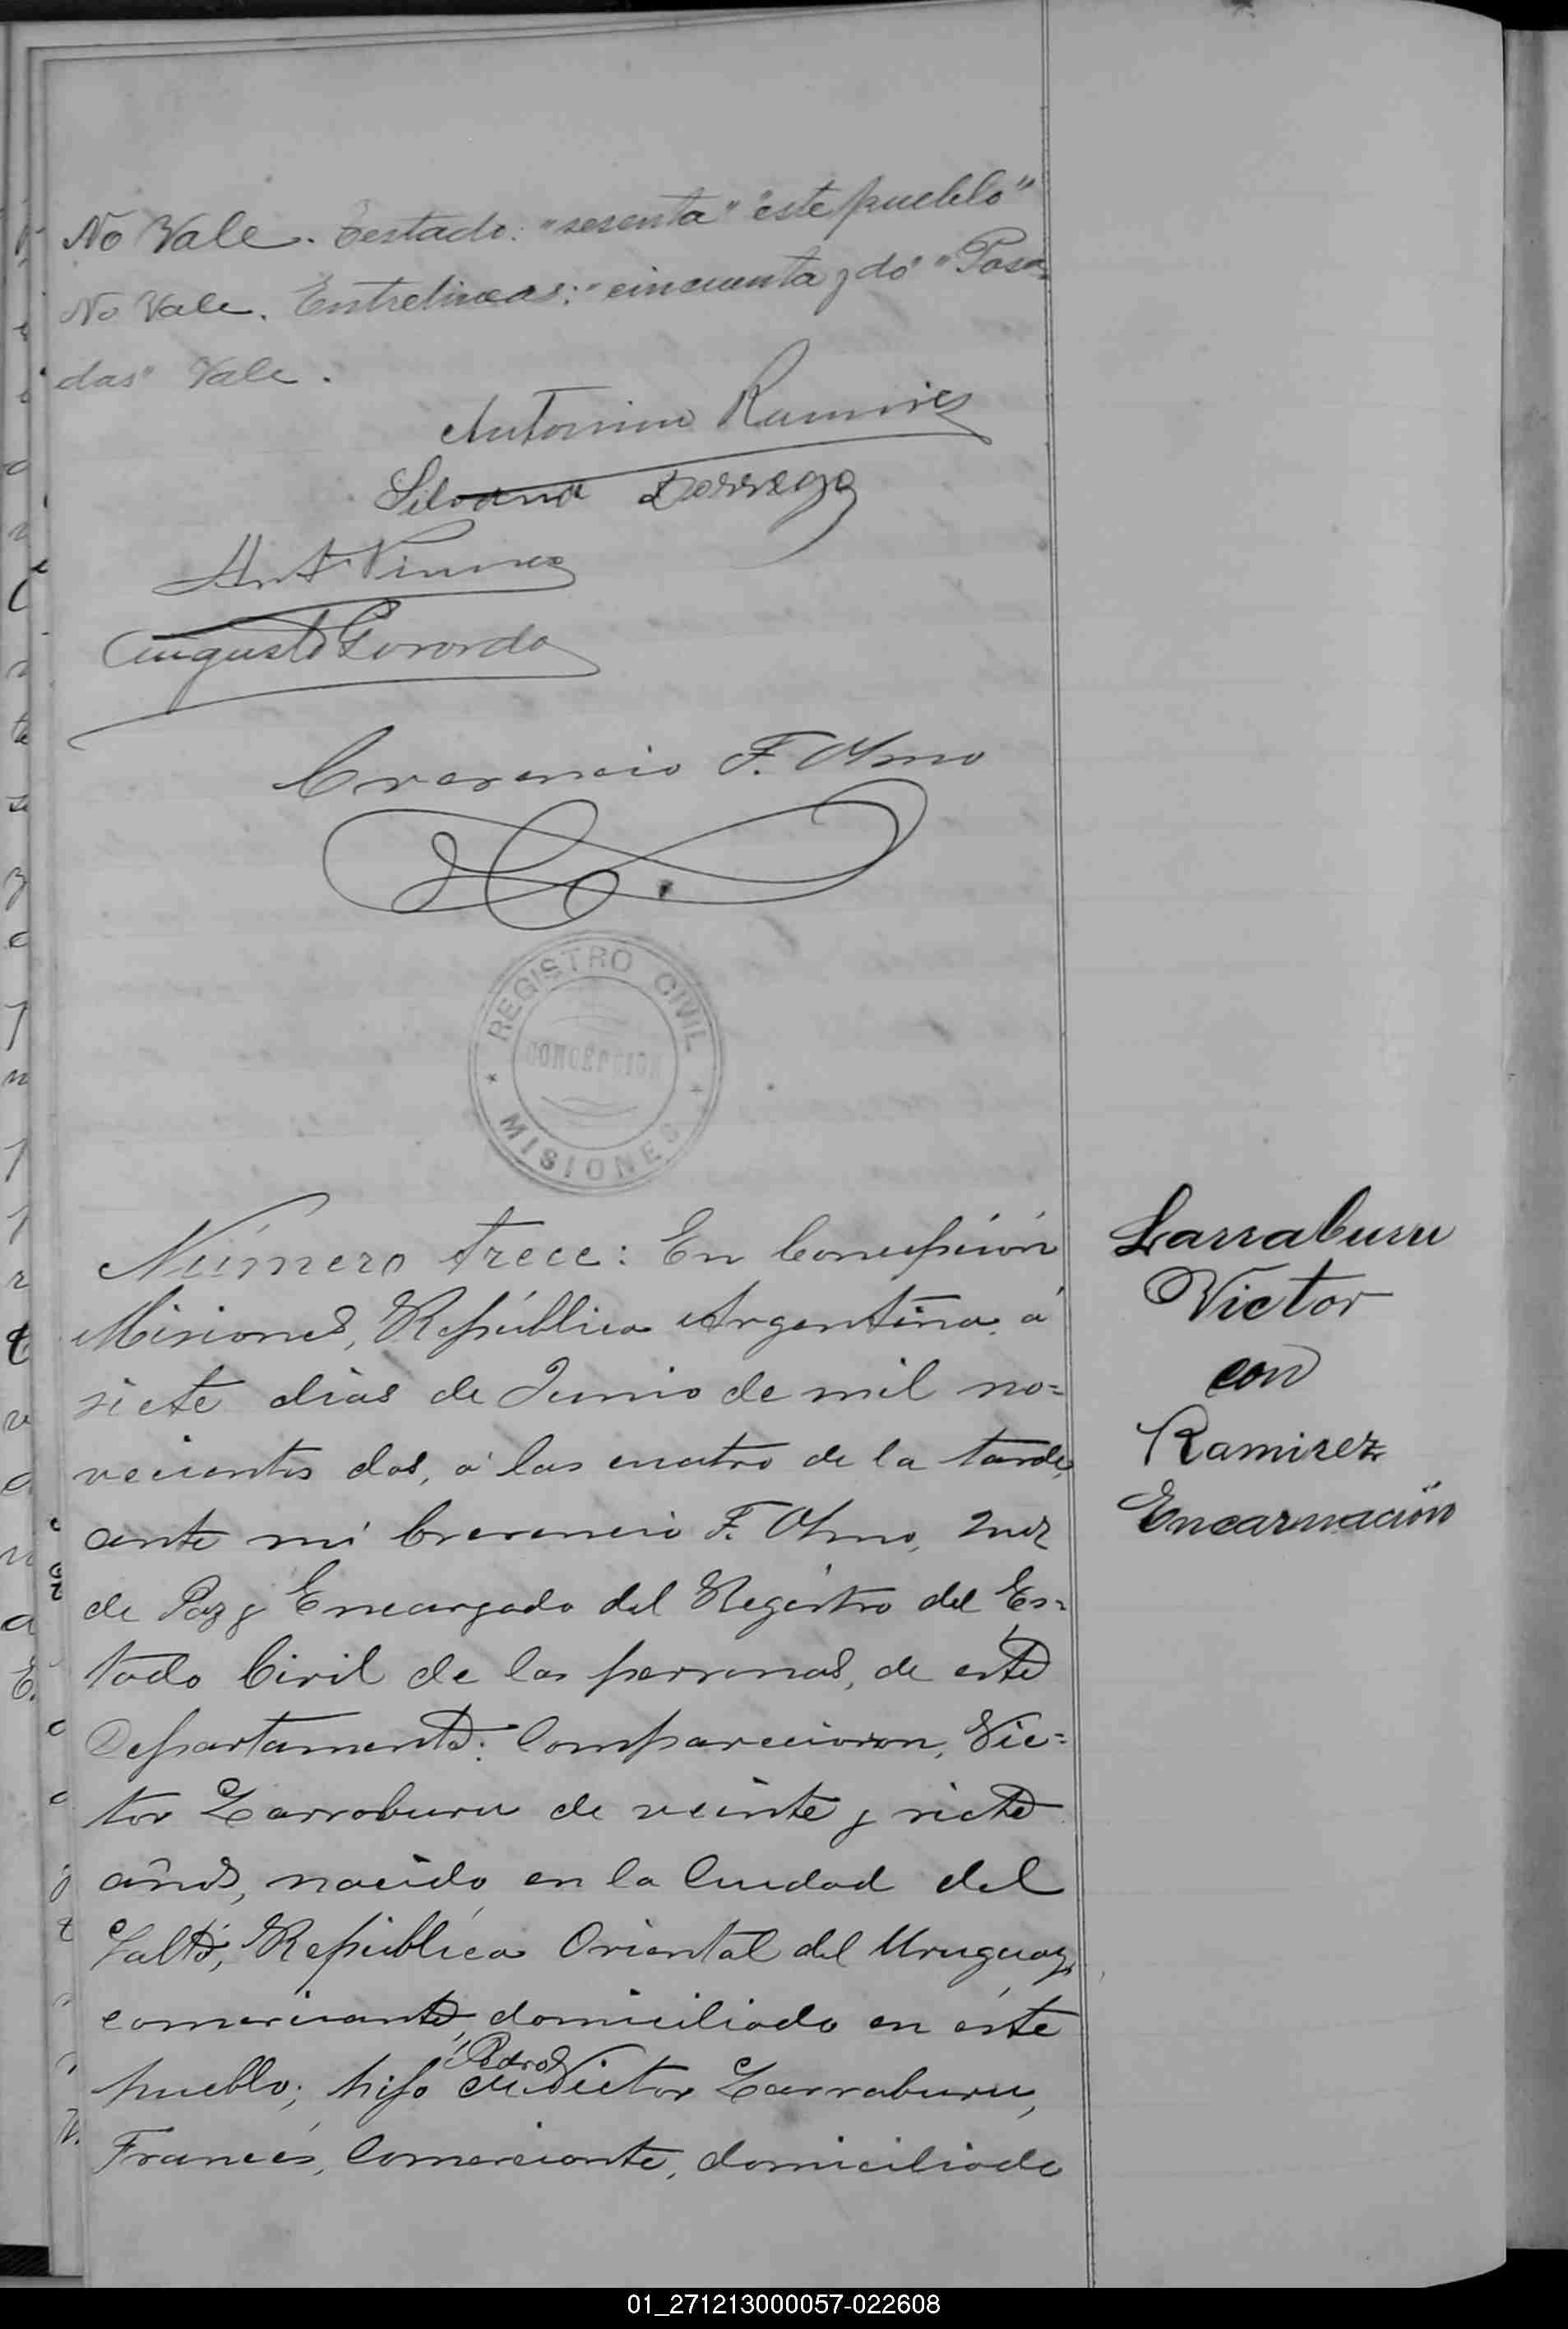 No Vale. Testado: "sesenta" "este pueblo"
No Vale. Entrelineas: "cincuenta y do" "Posa
das" Vale.
Antonino Ramirez
Silvano Dorrego
Ant
Augusto Gorordo
Crecencio F. Olmo
REGISTRO CIVIL
CONCEPCION
MISIONES
Número trece: En Concepción
Misiones, República Argentina á
siete dias de Junio de mil no=
vecientos dos, á las cuatro de la tarde,
ante mi Crecencio F. Olmo, Juez
de Paz y Encargado del Registro del Es=
tado Civil de las personas, de este
Departamento: Comparecieron, Vic=
tor Larraburu de veinte y siete
años, nacido en la Ciudad del
Salto, República Oriental del Uruguay,
comerciante domiciliado en éste
Pedro
pueblo; hijo de Victor Larraburu,
Francés, Comerciante, domiciliado
Larraburu
Victor
con
Ramirez
Encarnación
01_271213000057-022608